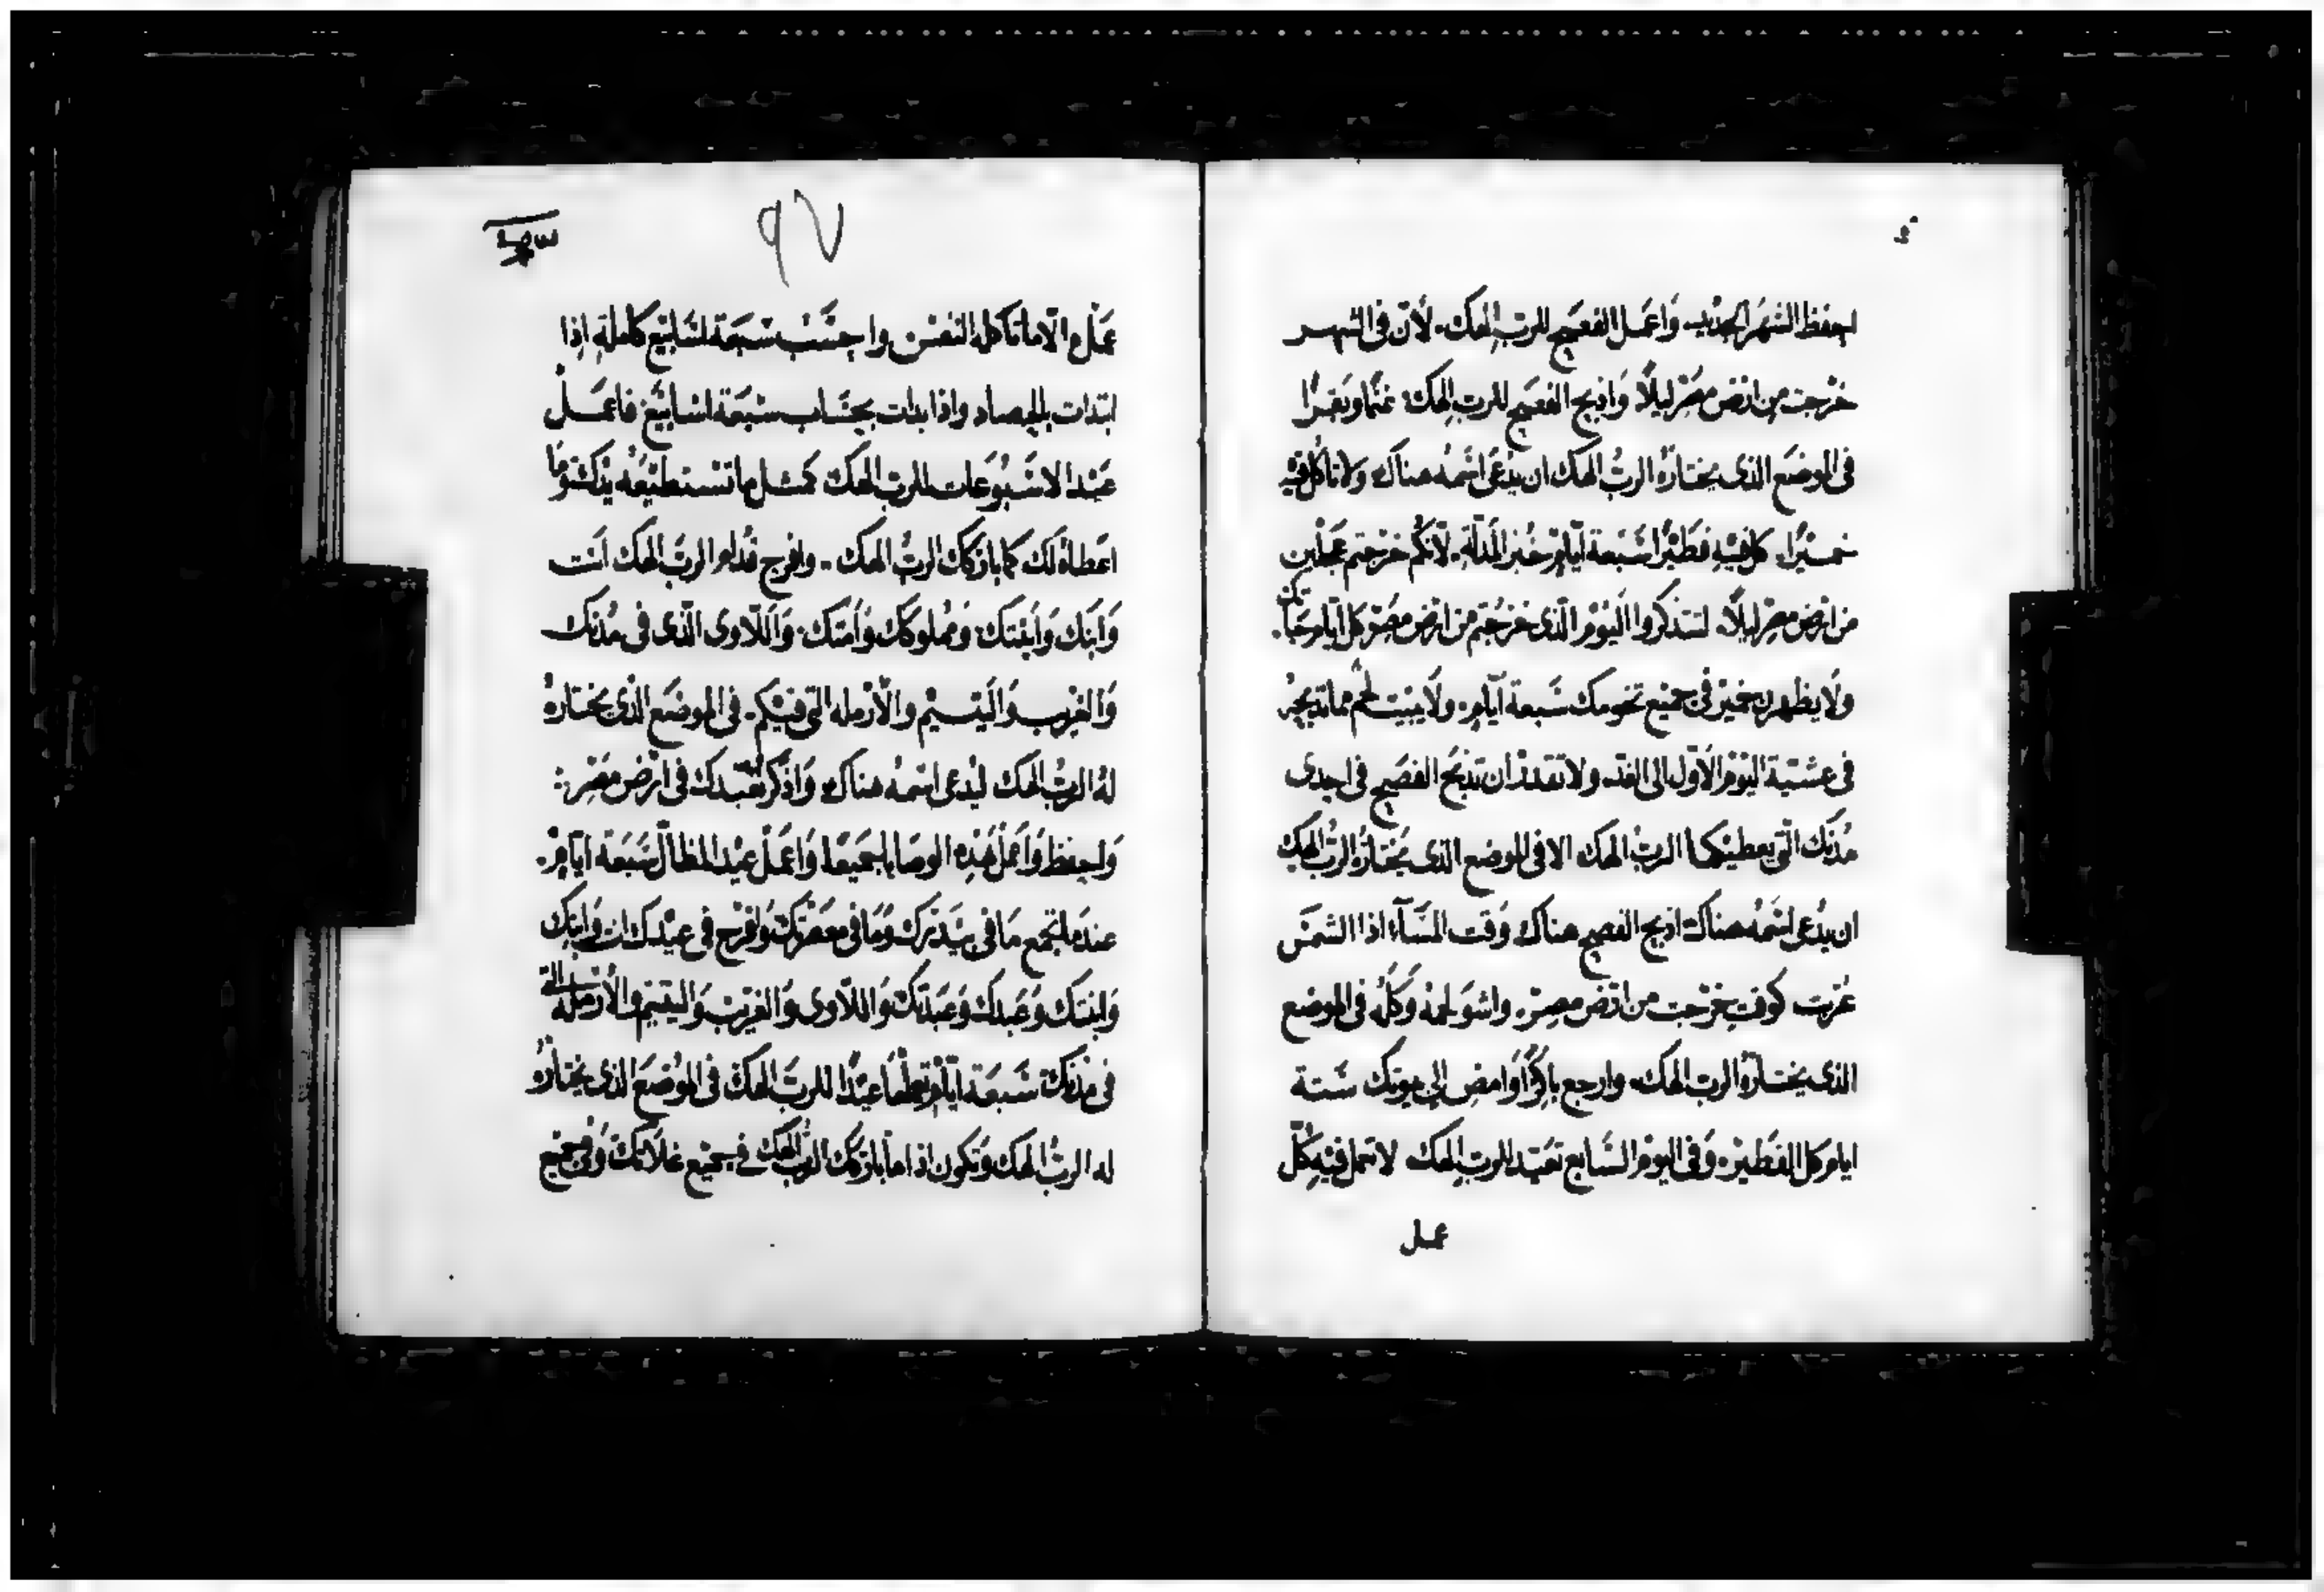 احفظ الشهر الجديد وَاعمَل الفصح للرب الهك. لأن فى الشهر
خرجت من ارض مصر ليلًا وَاذبح الفصح للرب الهك غنمًا وبقرًا
فى الموضع الذى يختاره الربُ الهك ان يدعَى اسمه هناك ولا تاكل فيه
خميرًا. كل فيه فطيرًا سَبعة ايام خبز المذلة. لانكم خرجتم عجلين
من ارض مصر ليلًا. لتذكروا اليوم الذى خرجتم من ارض مصر كل ايام حياتكم.
ولا يظهرن خمير فى جميع تخومك سَبعة ايام. ولا يبيت لحم مما تذبحه
فى عشية اليوم الأول الى الغد ولا تقدر ان تذبح الفصح فى احدى
مدنك التى يعطيكها الربُ الهك الا فى الموضع الذى يختاره الربُ الهك
ان يدعى اسمه هناك اذبح الفصح هناك وقت المسَآء اذا الشمس
غربت كوقت خرجت من ارض مصر. واشو لحمه وكله فى الموضع
الذى يختاره الرب الهك. وارجع باكرًا وامض الى بيوتك سَتة
ايام كل الفطير. وَفى اليوم السَابع تعيد للرب الهك لا تعمل فيه كل
عمل
٩٧
عمل الا ما تاكله النفس واحسَب سَبعَة اسَابيع كاملة اذا
ابتدات بالحصاد واذا بدات بحسَاب سبعَة اسابيع فاعمَل
عيدا لاسَبُوعَات للرب الهك كمثل ما تستطيعه يدك وما
اعطاه لك كما باركك الربُ الهك. وافرح قدام الربُ الهك انت
وَابنك وَابنتك وَمملوكك وَامتك. وَاللاوى الذى فى مُدنك
وَالغريب وَاليتيم والأرمله التى فيكم. فى الموضع الذى يختاره
لهُ الربُ الهك ليُدعى اسمه هناك وَاذكر تعبدك فى ارض مصر:
وَاحفظ وَاعمل هَذه الوصايا جميعا وَاعمَل عيد المظال سَبعَة ايام.
عندما تجمع مَا فى بيدرك وَمَا فى معصرتك وافرح فى عيدك انت وَابنك
وَابنتك وَعَبدك وَعَبدتك وَاللاوى وَالغريب وَاليتيم والأرملة التى
فى مدنك سَبعَة ايام تعملها عيدًا للربَ الهك فى الموضعَ الذى يختاره
له الربُ الهك وَتكون اذا ما باركك الربُ الهك فى جميع غلاتك وَفى جميع